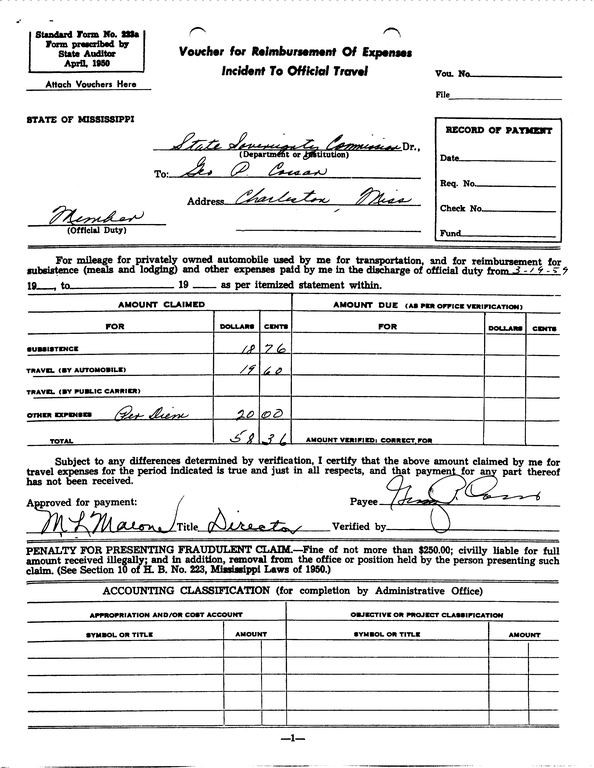 Standard Form No. 223a
Form prescribed by
State Auditor
April, 1950
Attach Vouchers Here
Voucher for Reimbursement Of Expenses
Incident To Official Travel
Vou. No.
File
STATE OF MISSISSIPPI
State Sovereignty Commission Dr.,
(Department or Institution)
To: Geo P. Cossar
Address Charleston, Miss
Member
(Official Duty)
RECORD OF PAYMENT
Date
Req. No.
Check No.
Fund
For mileage for privately owned automobile used by me for transportation, and for reimbursement for
subsistence (meals and lodging) and other expenses paid by me in the discharge of official duty from 3-19-59
19___, to___ 19___ as per itemized statement within.
AMOUNT CLAIMED AMOUNT DUE (AS PER OFFICE VERIFICATION)
FOR DOLLARS CENTS FOR DOLLARS CENTS
SUBSISTENCE 18 76
TRAVEL (BY AUTOMOBILE) 19 60
TRAVEL (BY PUBLIC CARRIER)
OTHER EXPENSES Per Diem 20 00
TOTAL 58 36 AMOUNT VERIFIED: CORRECT, FOR
Subject to any differences determined by verification, I certify that the above amount claimed by me for
travel expenses for the period indicated is true and just in all respects, and that payment for any part thereof
has not been received.
Approved for payment: Payee
M L Malone Title Director Verified by
PENALTY FOR PRESENTING FRAUDULENT CLAIM.—Fine of not more than $250.00; civilly liable for full
amount received illegally; and in addition, removal from the office or position held by the person presenting such
claim. (See Section 10 of H. B. No. 223, Mississippi Laws of 1950.)
ACCOUNTING CLASSIFICATION (for completion by Administrative Office)
APPROPRIATION AND/OR COST ACCOUNT OBJECTIVE OR PROJECT CLASSIFICATION
SYMBOL OR TITLE AMOUNT SYMBOL OR TITLE AMOUNT
—1—